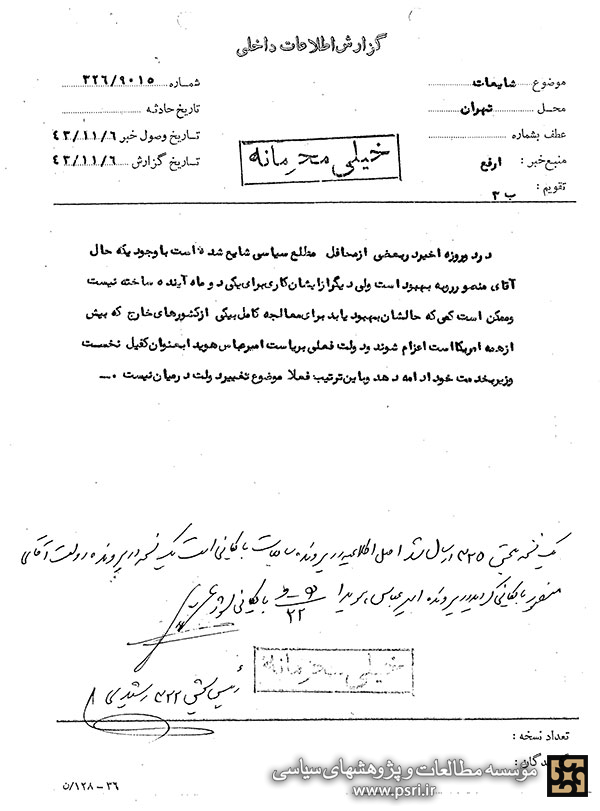 گزارش اطلاعات داخلی
موضوع شایعات
محل تهران
عطف بشماره
منبع خبر : ارفع
تقویم : ب ۳
شماره ۳۲۶/۹۰۱۵
تاریخ حادثه
تاریخ وصول خبر ۴۳/۱۱/۶
تاریخ گزارش ۴۳/۱۱/۶
خیلی محرمانه
در دو روزه اخیر در بعضی از محافل مطلع سیاسی شایع شده است با وجودیکه حال
آقای منصور رو به بهبود است ولی دیگر از ایشان کاری برای یکی دو ماه آینده ساخته نیست
و ممکن است کمی که حالشان بهبود یابد برای معالجه کامل بیکی از کشورهای خارج که بیش
از همه امریکا است اعزام شوند و دولت فعلی بریاست امیرعباس هویدا بعنوان کفیل نخست
وزیر بخدمت خود ادامه دهد و باین ترتیب فعلا موضوع تغییر دولت در میان نیست .
یک نسخه ببخش ۳۲۵ ارسال شد اصل اطلاعیه در پرونده شایعات بایگانی است یک نسخه در پرونده دولت آقای
منصور بایگانی گردید در پرونده امیرعباس هویدا ۲۲ بایگانی شود
خیلی محرمانه
رئیس بخش ۳۲۲ رشیدی
تعداد نسخه :
گیرندگان :
۳۶ – ۱۲۸/ن
موسسه مطالعات و پژوهشهای سیاسی
www.psri.ir